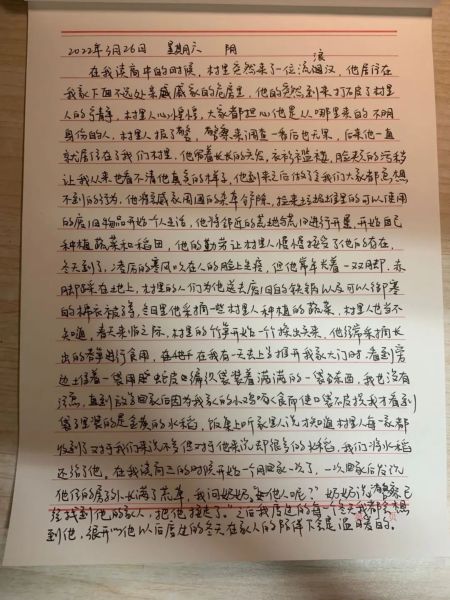 2022年3月26日 星期六 阴
在我读高中的时候，村里突然来了一位流浪汉，他居住在
我家下面不远处亲戚家的危房里，他的突然到来打破了村里
人的宁静，村里人心惶惶，大家都担心他是从哪里来的不明
身份的人，村里人报了警，警察来调查一番后也无果，后来他一直
就居住在了我们村里，他留着长长的头发，衣衫褴褛，脸颊的污秽
让我从来也看不清他真实的样子，他到来之后做了令我们大家都意想
不到的行为，他将亲戚家周围的杂草铲除，捡来垃圾堆里的可以使用
的废旧物品开始一个人生活，他将邻近的荒地与荒田进行开垦，开始自己
种植蔬菜和稻田，他的勤劳让村里人慢慢接受了他的存在，
冬天到了，凛厉的寒风吹在人的脸上生疼，但他常年光着一双脚，赤
脚踩在地上，村里的人们为他送去废旧的铁锅以及可以御寒
的棉衣被等，冬日里他采摘一些村里人种植的蔬菜，村里人也当不
知道，春天来临之际，村里的竹笋开始一个个探出头来，他经常采摘长
出的春笋进行食用，在他于在我有一天去上学推开我家大门时，看到旁
边立着一袋用蛇皮编织袋装着满满的一袋东西，我也没有
经意，直到放学回家后因为我家的小鸡啄食而使口袋不庇损我才看到
袋里装的是金黄的水稻，饭桌上听家里人说才知道村里人每一家都
收到了对于我们来说不多但对于他来说却很多的水稻，我们将水稻
还给了他。在我读高三的时候开始一个月回家一次了，一次回家后发现
他住的房子外长满了荒草，我问奶奶"他人呢？"奶奶说"警察已
经找到他的家人，把他接走了。"之后我度过的每一个冬天我都会想
到他，很开心他以后度过的冬天在家人的陪伴下会是温暖的。